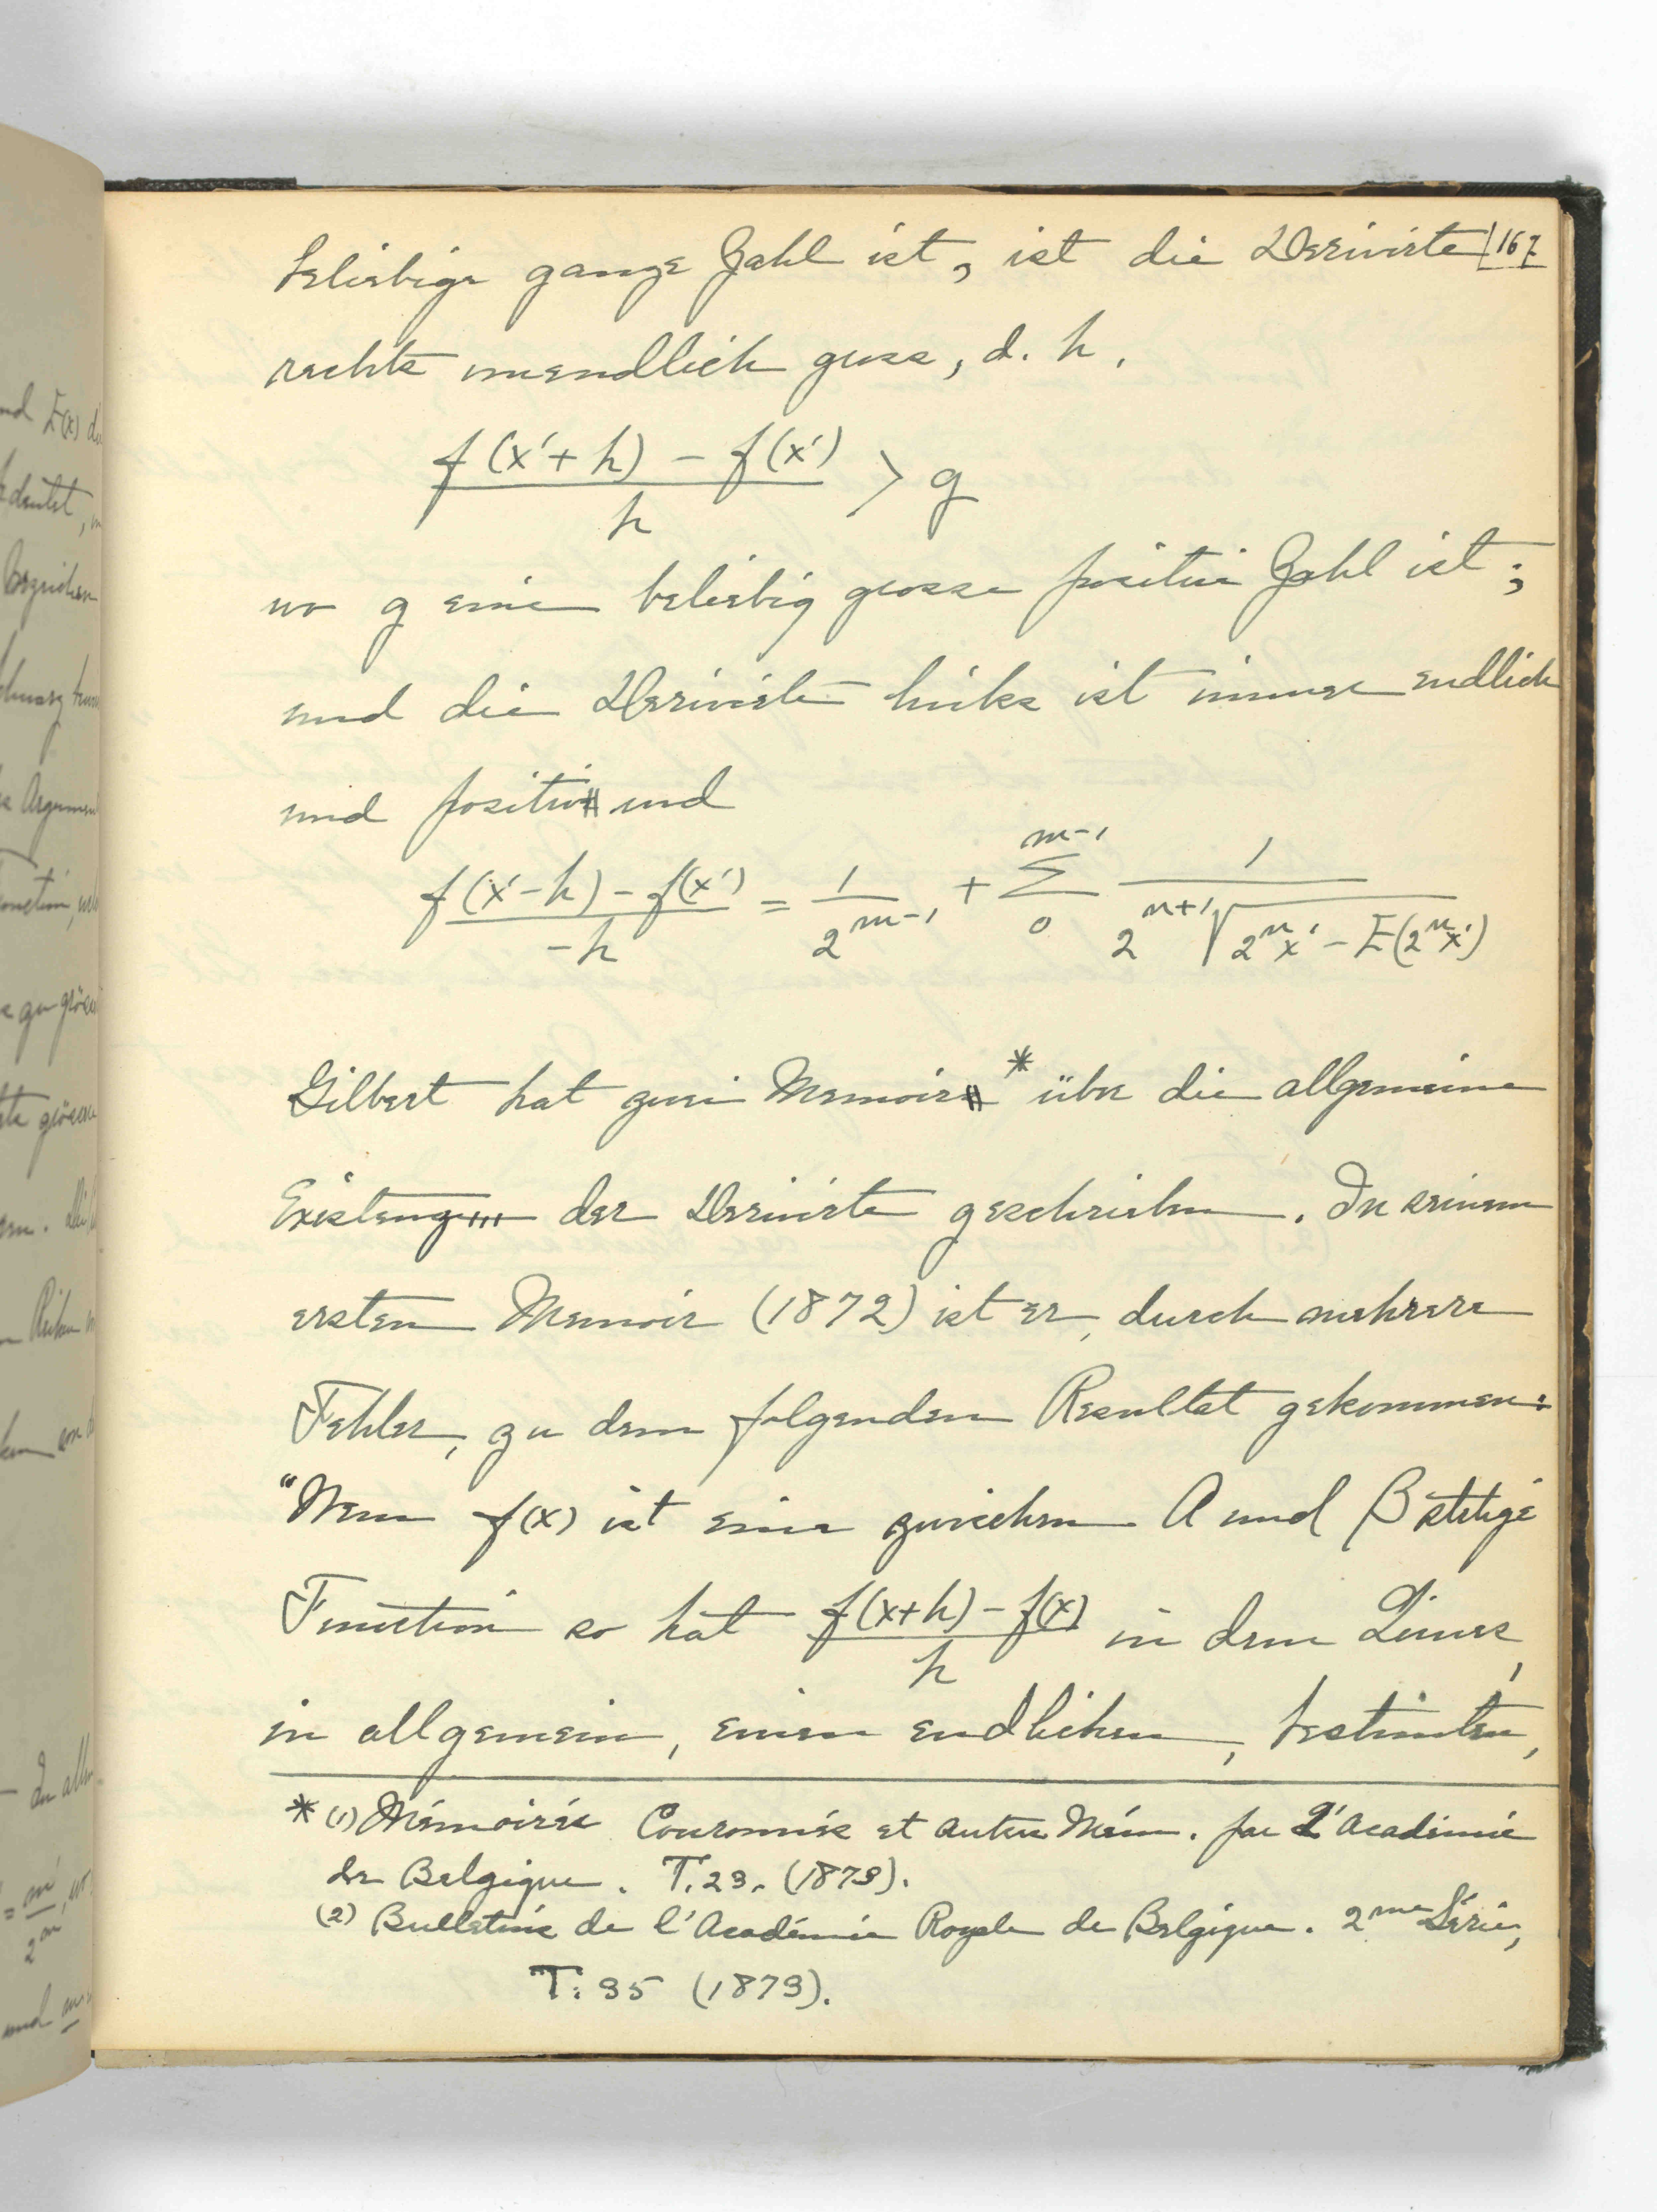 beliebige ganze Zahl ist, ist die Derivirte 167
rechts unendlich gross, d. h.
f(x'+h) - f(x') / h > g
wo g eine beliebig grosse positive Zahl ist;
und die Derivirte links ist immer endlich
und positiv und
f(x'-h) - f(x') / -h = 1 / 2^{m-1} + Σ_{0}^{m-1} 1 / 2^{n+1} √(2^n x' - E(2^n x'))
Gilbert hat zwei Memoir * über die allgemeine
Existenz der Derivirte geschrieben. In seinem
ersten Memoir (1872) ist er, durch mehrere
Fehler, zu dem folgenden Resultat gekommen:
"Wenn f(x) ist eine zwischen A und B stetige
Function so hat f(x+h) - f(x) / h in dem Limes,
in allgemein, einen endlichen, bestimten,
* (1) Mémoirés Couronnés et autres Mém. par l'Académie
de Belgique. T. 23. (1873).
(2) Bulletins de l'Académie Royale de Belgique. 2me Série,
T: 35 (1873).
und E(x) die
bedeutet,
Bezeichnen
Argument
Function,
zu grösse
grösse
Reihen
In allen
= m' / 2^m, wo
und